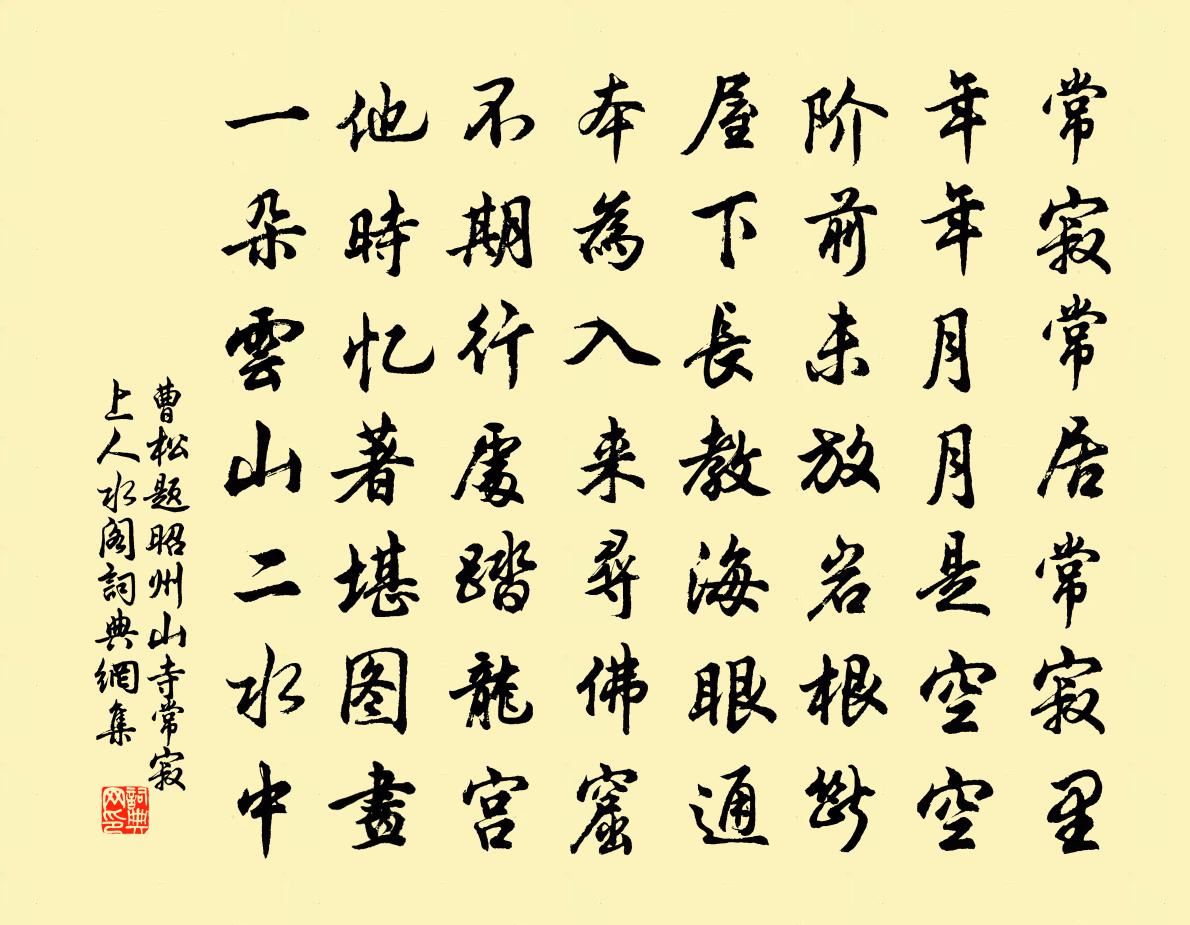 常寂常居常寂里
年年月月是空空
阶前未放岩根断
屋下長教海眼通
本為入来尋佛窟
不期行處踏龍宮
他時忆著堪图畫
一朵雲山二水中
曹松题昭州山寺常寂
上人水阁詞典網集
詞典
网印